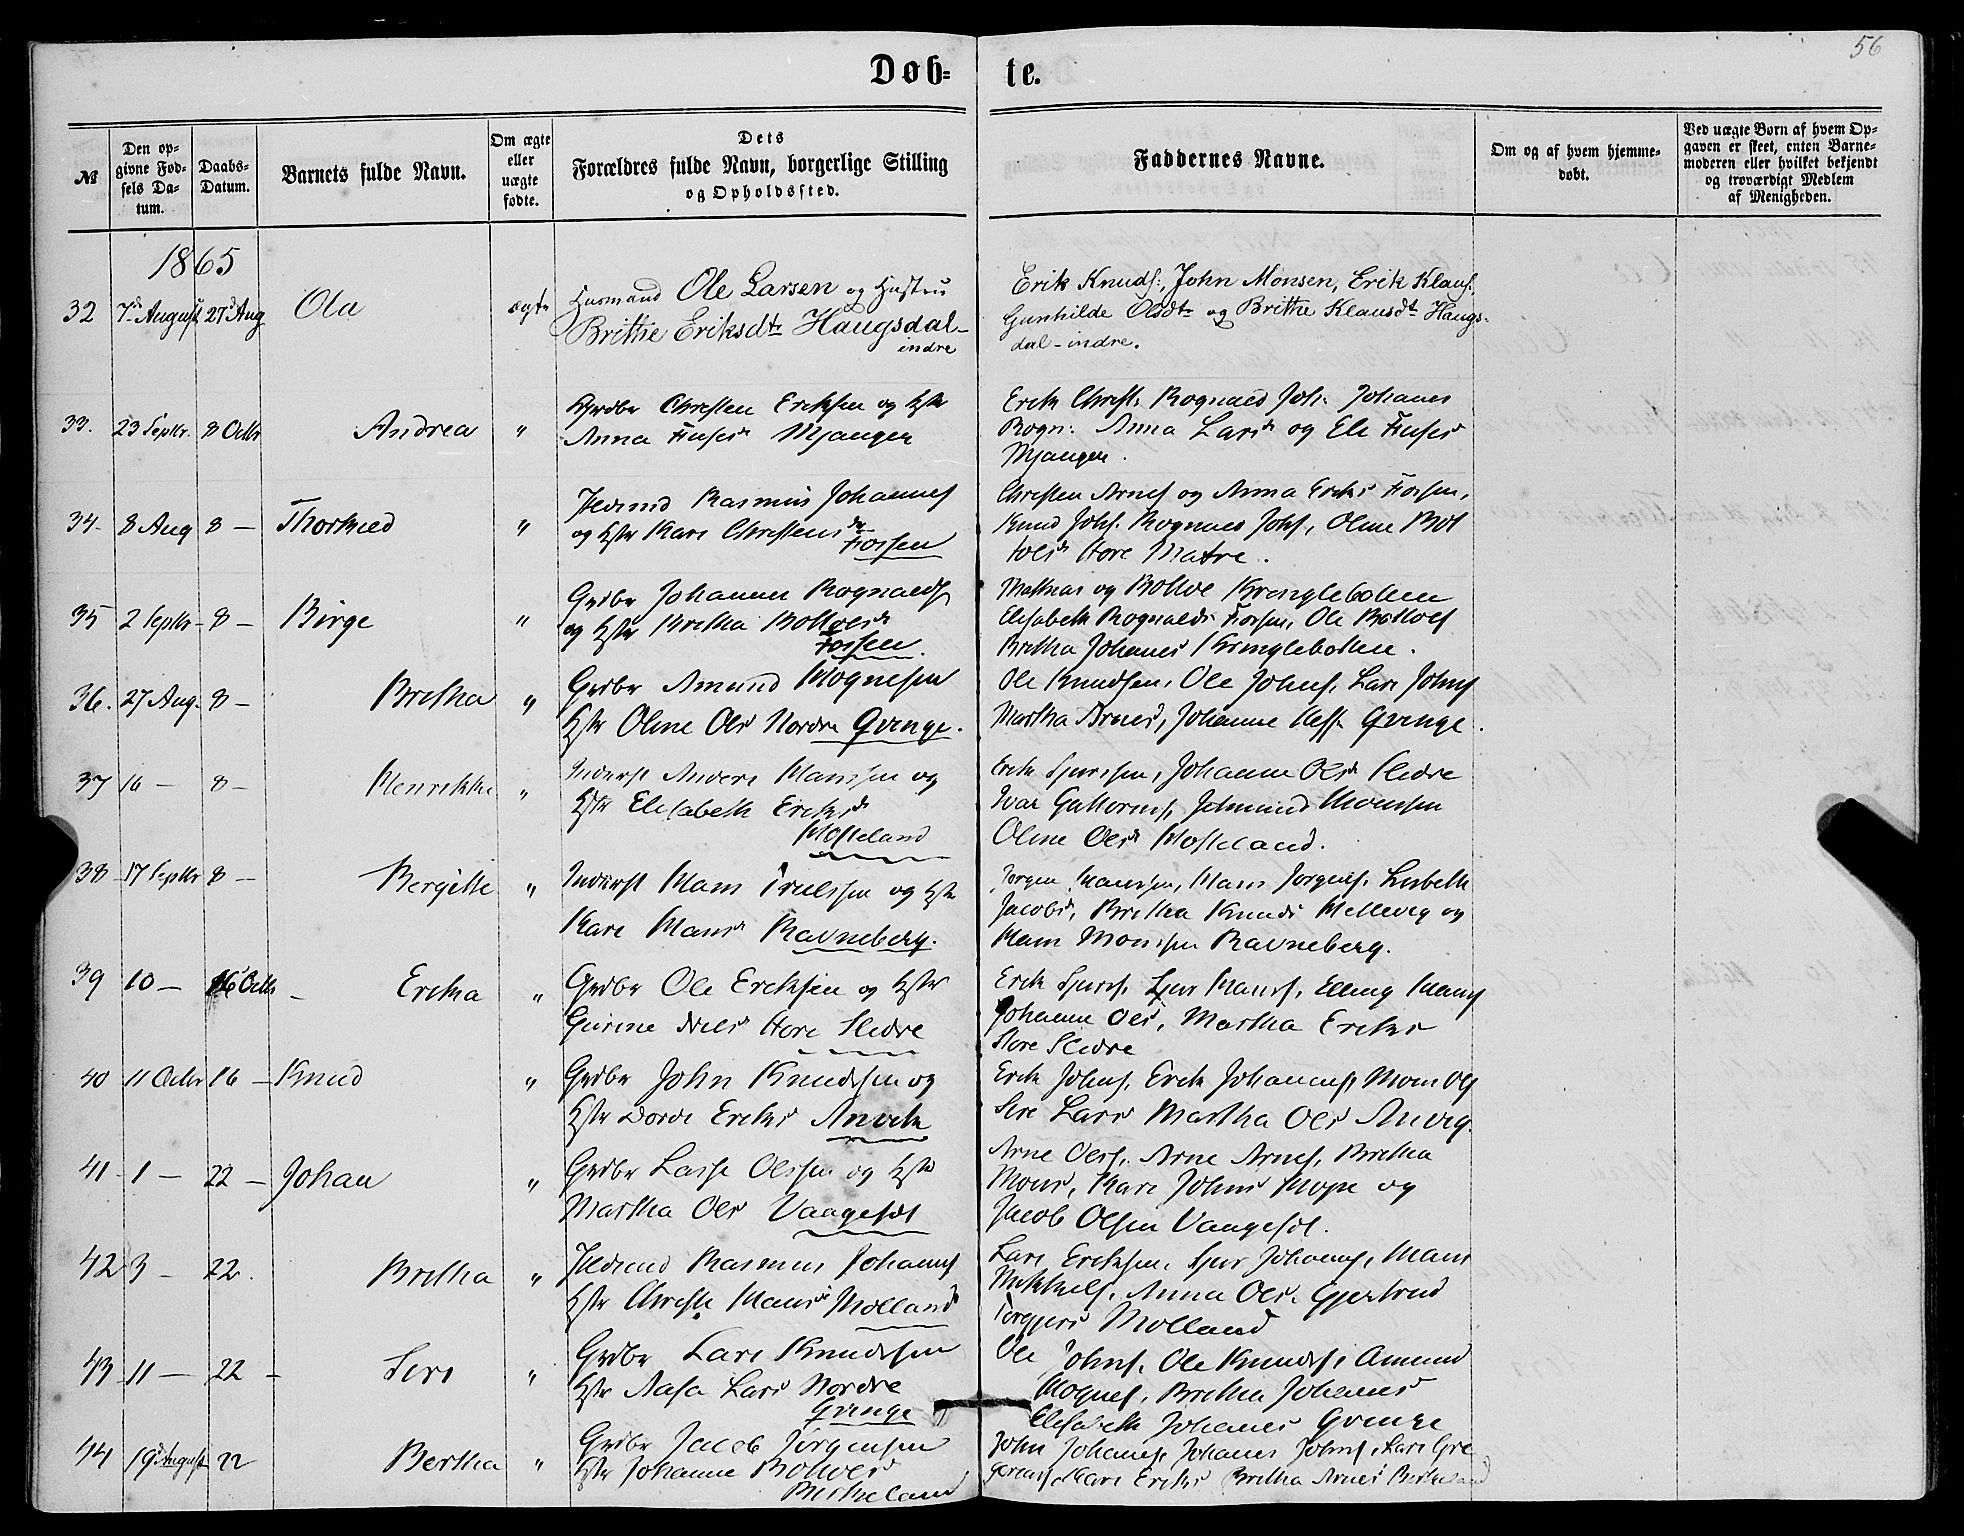 56
Døb-
te.
№
Den op-
givne Fød-
sels Da-
tum.
Daabs-
Datum.
Barnets fulde Navn.
Om ægte
eller
uægte
fødte.
Dets
Forældres fulde Navn, borgerlige Stilling
og Opholdssted.
Faddernes Navne.
Om og af hvem hjemme-
døbt.
Ved uægte Børn af hvem Op-
gaven er skeet, enten Barne-
moderen eller hvilket bekjendt
og troværdigt Medlem
af Menigheden.
1865
32 7de August 27de Aug Ola ægte Husmand Ole Larsen og Hustru
Brithe Eriksdtr Haugsdal-
indre
Erik Knuds:, John Monsen, Erik Klaus:,
Gunhilde Olsdtr og Brithe Klausdtr Haugs-
dal-indre.
33. 23 Septbr. 8 Octbr Andrea " Grdbr Christen Eriksen og Hstr
Anna Mjanger
Erik Christ: Rognald Joh: Johanes
Rogn: Anna Larsd og Eli
Mjanger.
34. 8 Aug 8 — Thorkild " Rasmus Johannes
og Hstr Kari Christensdtr
Fossen
Christen Arnes og Anna Eriks Fossen,
Knud Johs. Rognald Johs, Oline Bot
Store Matre.
35 2 Septbr - 8 - Birge " Grdbr Johannes Rognalds
og Hstr Bretha Botolvsd
Fossen.
Mathias og Botolv Kringlebotten
Elisabeth Rognalds Fossen, Ole Botolvs
Bretha Johanes Kringlebotten.
36. 27 Aug. 8 - Bretha " Grdbr Amund Mognesen
Hstr Oline Ols Nordre Qvinge.
Ole Knudsen, Ole Johns, Lars Johns
Martha Arnes, Johanne Qvinge.
37 16 - 8 - Henrikke " Inderst Anders Hanssen og
Hstr Elisabeth Eriksd
Hosteland
Erik Sjurssen, Johanne Olsd Sleire
Ivar Guttorms, Monssen
Oline Olsd Hosteland.
38 17 Septbr 8 - Bergitte " Inderst Hans Trulssen og Hstr
Kari Hansd Ravneberg.
Jørgen Hanssen, Hans Jørgens, Lisbeth
Jacobsd, Bretha Knuds Mellevig og
Hans Monssen Ravneberg.
39 10 - 16 Octbr - Erika " Grdbr Ole Eriksen og Hstr
Gurine Nilsd Store Sleire
Erik Sjurs, Sjur Hans, Elling Hans
Johanne Ols, Martha Eriks
Store Sleire
40 11 Octbr 16 - Knud " Grdbr John Knudssen og
Hstr Dorde Eriks Anvik
Erik Johns, Erik Johannes, Mons Ols
Siri Lars Martha Ols Anvig.
41 1 - 22 - Johan " Grdbr Lasse Olssen og Hstr
Martha Ols Vaagesøt
Arne Ols, Arne Arnes, Bretha
Mons, Kari Johns Hope og
Jacob Olsen Vaagesøt.
42 3 - 22. Bretha " Rasmus Johannes
Hstr Christi Hans Molland
Lars Eriksen, Sjur Johannes, Hans
Mikkels, Anna Ols, Gjertrud
Torgjers Molland
43 11 - 22 - Siri " Grdbr Lars Knudssen
Hstr Aasa Lars Nordre
Qvinge
Ole Johns, Ole Knuds, Amund
Mognes, Bretha Johanes
Elisabeth Johanes Qvinge
44 19de August 22 Bertha " Grdbr Jacob Jørgensen
Hstr Johanne Botolvs
Birkeland
John Johannes, Johanes Johns, Lars
Kari Eriks Bretha Arnes Birkeland